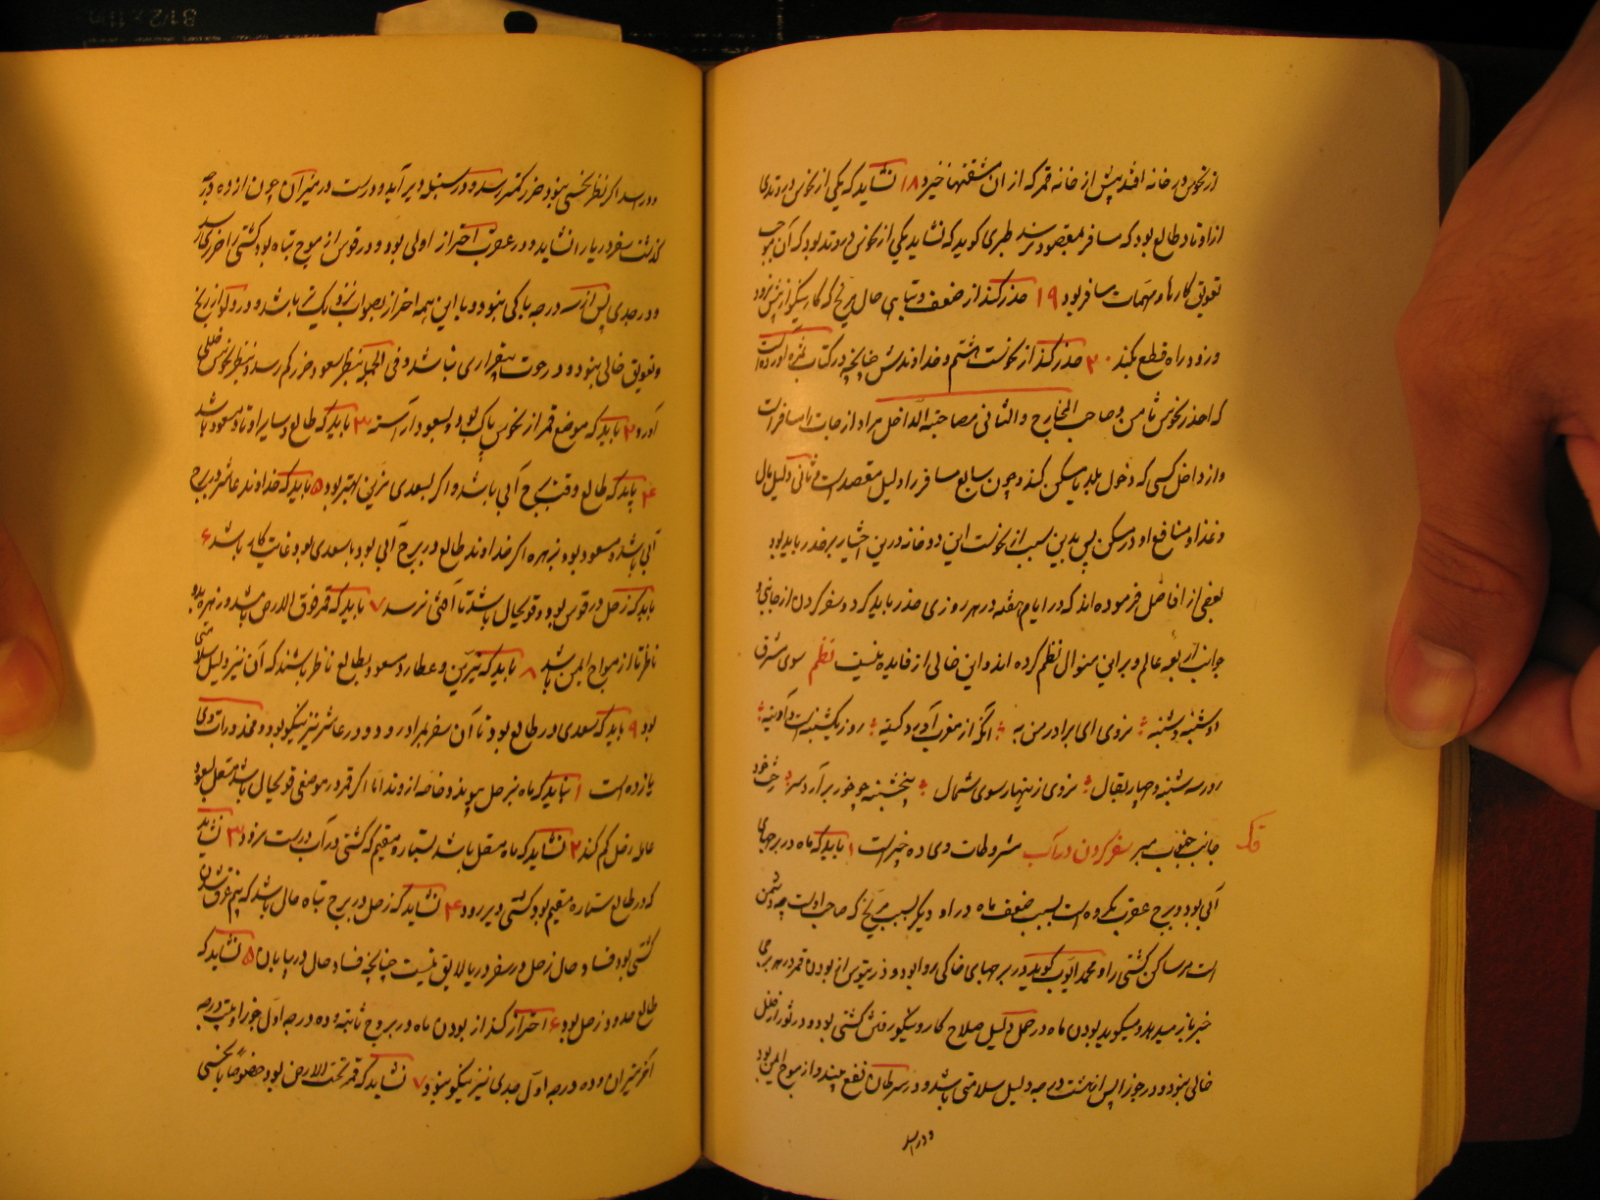 از نحوس در خانه افتد پیش از خانه قمر که از ان مشقتها خیزد ۱۸ نشاید که یکی از نحوس در وتدی
از اوتاد طالع بود که مسافر بمقصود نرسد طبری کوید که نشاید یکی از نحوس در وتد بود که آن موجب
تعویق کارها و مهمات مسافر بود ۱۹ حذر کند از ضعف و تباهی حال مریخ که کار نیکو از پیش نرود
و زود راه قطع نکند ۲۰ حذر کند از نحوست هشتم و خداوندش چنانچه در کتاب ثمره آورده است
که احذر نحوس ثامن و صاحب الخارج والثانی و صاحبه الداخل مراد از
و از داخل کسی که دخول بلد یا مسکن کند و چون سابع مسافر را دلیل مقصد است و ثانی دلیل مال
و غذا و منافع او در مسکن پس بدین سبب از نحوست این دو خانه درین اختیار بر حذر باید بود
بعضی از افاضل فرموده اند که در ایام هفته در هر روزی حذر باید کرد و سفر کردن از جانبی از
جوانب اربعه عالم و بر این منوال نظم کرده اند و این خالی از فایده نیست نظم سوی مشرق
دوشنبه و شنبه نروی ای برادر من به آنکو از مغرب آدی بد کینه روز یکشنبه است و آدینه
روز سه شنبه و چهار بقال نروی زینهار سوی شمال پنجشنبه چو خور برآرد سر رخت خود
جانب جنوب مبر سفر کردن در آب مشروطات وی ده چیز است ۱ باید که ماه در برجهای
آبی بود و برج عقرب مکروه است بسبب ضعف ماه در او و دیگر بسبب مریخ که صاحب اوست چه دشمن
است مر ساکن کشتی را و محمد ایوب کوید در برجهای خاکی روا بود و از بودن قمر در هر برجی
خبر باز میدهد و میکوید بودن ماه در حمل دلیل صلاح کار و نیکو رفتن کشتی بود و در ثور از خلل
خالی نبود و در جوزا پس از هشت درجه دلیل سلامتی باشد و در سرطان نفع بیند و از موج ایمن بود
و در اسد
فک
و در اسد اکر نظر نحسی نبود ضرر کمتر رسد و در سنبله دیر آید و درست در میزان چون از ده درجه
گذشت سفر دریا را نشاید و در عقرب احتراز اولی بود و در قوس از موج تباه بود کشتی را
و در جدی پس از سه درجه باکی نبود و با این همه احتراز بصواب نزدیک تر باشد و در دلو از رنج
و تعویق خالی نبود و در حوت بیقراری باشد و فی الجمله بنظر سعود ضرر کم رسد و بنظر نحوس خللی
آورد ۲ باید که موضع قمر از نحوس پاک بود و بسعود آراسته ۳ باید که طالع و سایر اوتاد مسعود باشد
۴ باید که طالع وقت برج آبی باشد و اگر بسعدی مزین بهتر بود ۵ باید که خداوند عاشر در برج
آبی باشد و مسعود بود بزهره اکر خداوند طالع در برج آبی بود با سعدی بود غایت کار باشد ۶
باید که زحل در قوس بود و قویحال باشد تا آفتی نرسد ۷ باید که قمر فوق الارض باشد و زهره بدو
ناظر تا از امواج ایمن باشد ۸ باید که نیرین و عطارد مسعود بطالع ناظر باشند که آن نیز دلیل سلامتی
بود ۹ باید که سعدی در طالع بود تا آن سفر بمراد رود و در عاشر نیز نیکو بود و محذورات وی
یازده است ۱ نباید که ماه بزحل پیوندد خاصه از وتد اما اکر قمر در موضعی قویحال باشد متصل بسعود
غایله زحل کم کند ۲ نشاید که ماه متصل باشد بستاره مقیم که کشتی در آب درست نرود ۳ نشاید
که در طالع ستاره مقیم بود کشتی دیر رود ۴ نشاید که زحل در برج تباه حال باشد که بیم غرق شدن
کشتی بود فساد حال زحل در سفر دریا لایق نیست چنانچه فساد حال در بیابان ۵ نشاید که
طالع حدود زحل بود ۶ احتراز کند از بودن ماه در بروج ثابته و ده درجه اول جوزا و بیست درجه
آخر میزان و ده درجه اول جدی نیز نیکو نبود ۷ نشاید که قمر تحت الارض بود خصوصا با نحسی